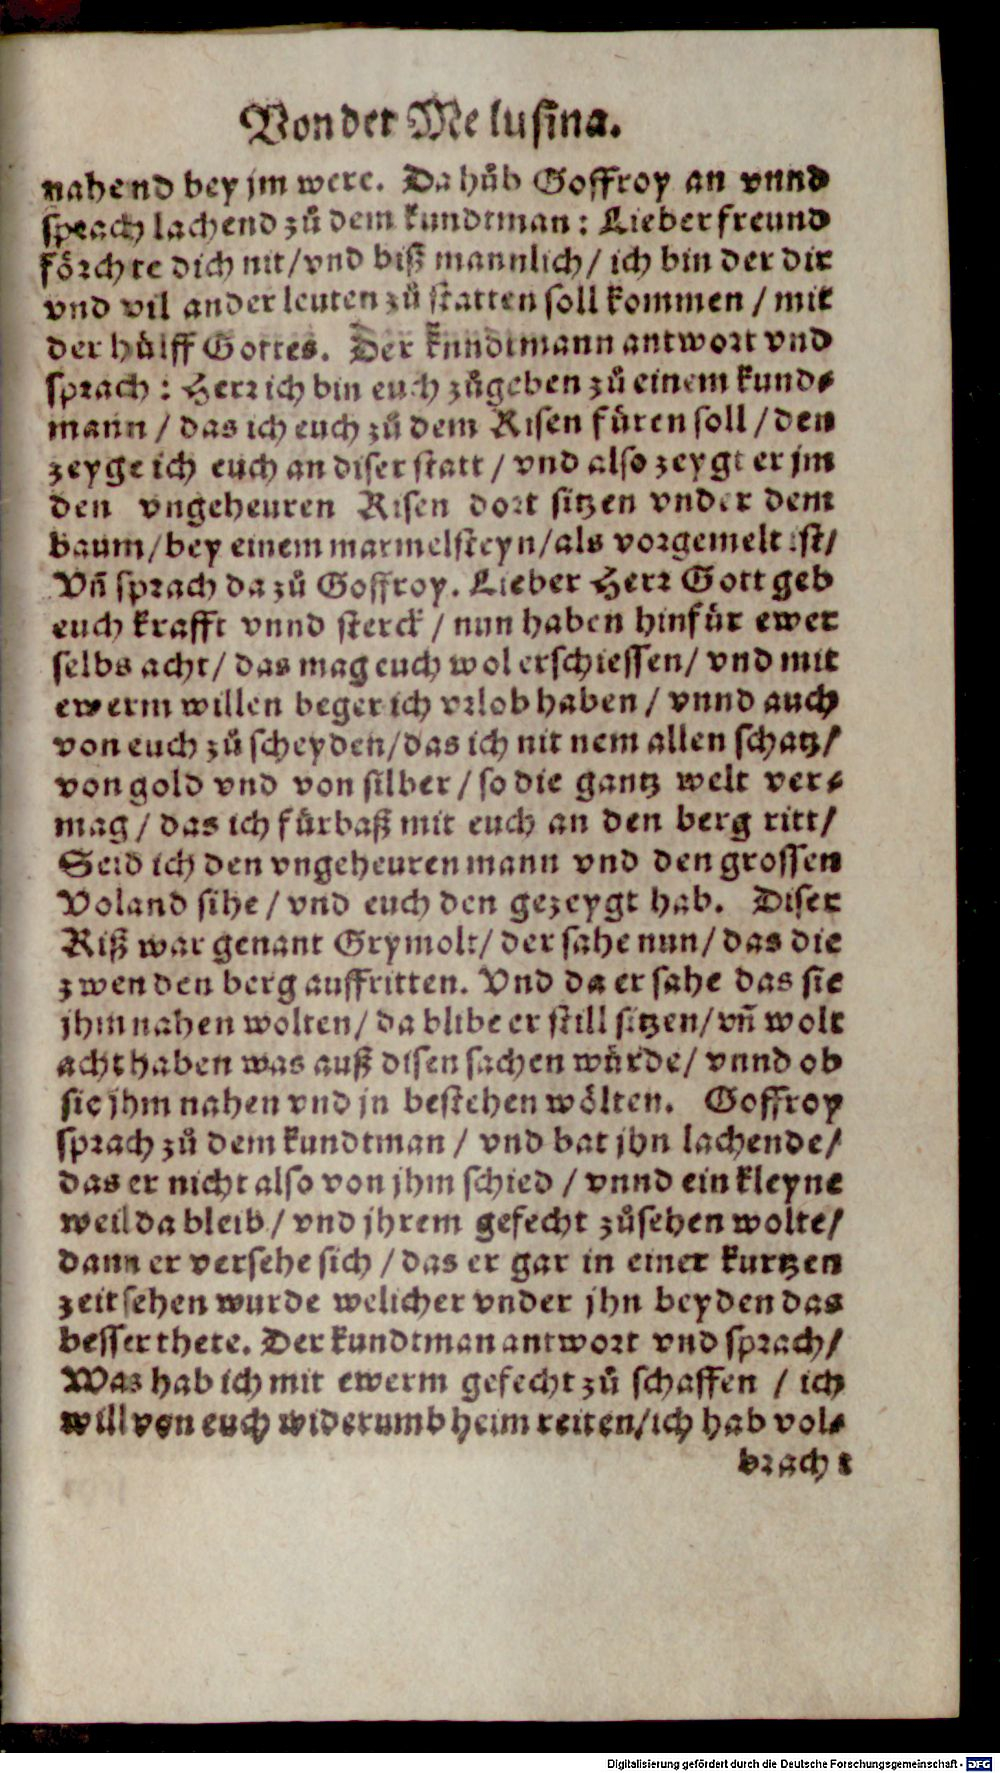 Von der Melusina.
nahend bey jm were. Da hůb Goffroy an vnnd
sprach lachend zů dem kundtman: Lieber freund
förchte dich nit/vnd biß mannlich/ ich bin der dir
vnd vil ander leuten zů statten soll kommen / mit
der hülff Gottes. Der kundtmann antwort vnd
sprach: Herr ich bin euch zůgeben zů einem kund⸗
mann / das ich euch zů dem Risen füren soll / den
zeyge ich euch an diser statt / vnd also zeygt er jm
den vngeheuren Risen dort sitzen vnder dem
baum/bey einem marmelsteyn/als vorgemelt ist/
Vñ sprach da zů Goffroy. Lieber Herr Gott geb
euch krafft vnnd sterck / nun haben hinfür ewer
selbs acht/ das mag euch wol erschiessen/ vnd mit
ewerm willen beger ich vrlob haben / vnnd auch
von euch zů scheyden/das ich nit nem allen schatz/
von gold vnd von silber / so die gantz welt ver⸗
mag / das ich fürbaß mit euch an den berg ritt/
Seid ich den vngeheuren mann vnd den grossen
Voland sihe / vnd euch den gezeygt hab. Diser
Riß war genant Grymolt/ der sahe nun/ das die
zwen den berg auffritten. Vnd da er sahe das sie
jhm nahen wolten/ da blibe er still sitzen/ vñ wolt
acht haben was auß disen sachen würde/ vnnd ob
sie jhm nahen vnd jn bestehen wölten. Goffroy
sprach zů dem kundtman / vnd bat jhn lachende/
das er nicht also von jhm schied / vnnd ein kleyne
weil da bleib / vnd jhrem gefecht zůsehen wolte/
dann er versehe sich / das er gar in einer kurtzen
zeit sehen wurde welicher vnder jhn beyden das
besser thete. Der kundtman antwort vnd sprach/
Was hab ich mit ewerm gefecht zů schaffen / ich
will von euch widerumb heim reiten/ich hab vol⸗
bracht
Digitalisierung gefördert durch die Deutsche Forschungsgemeinschaft - DFG